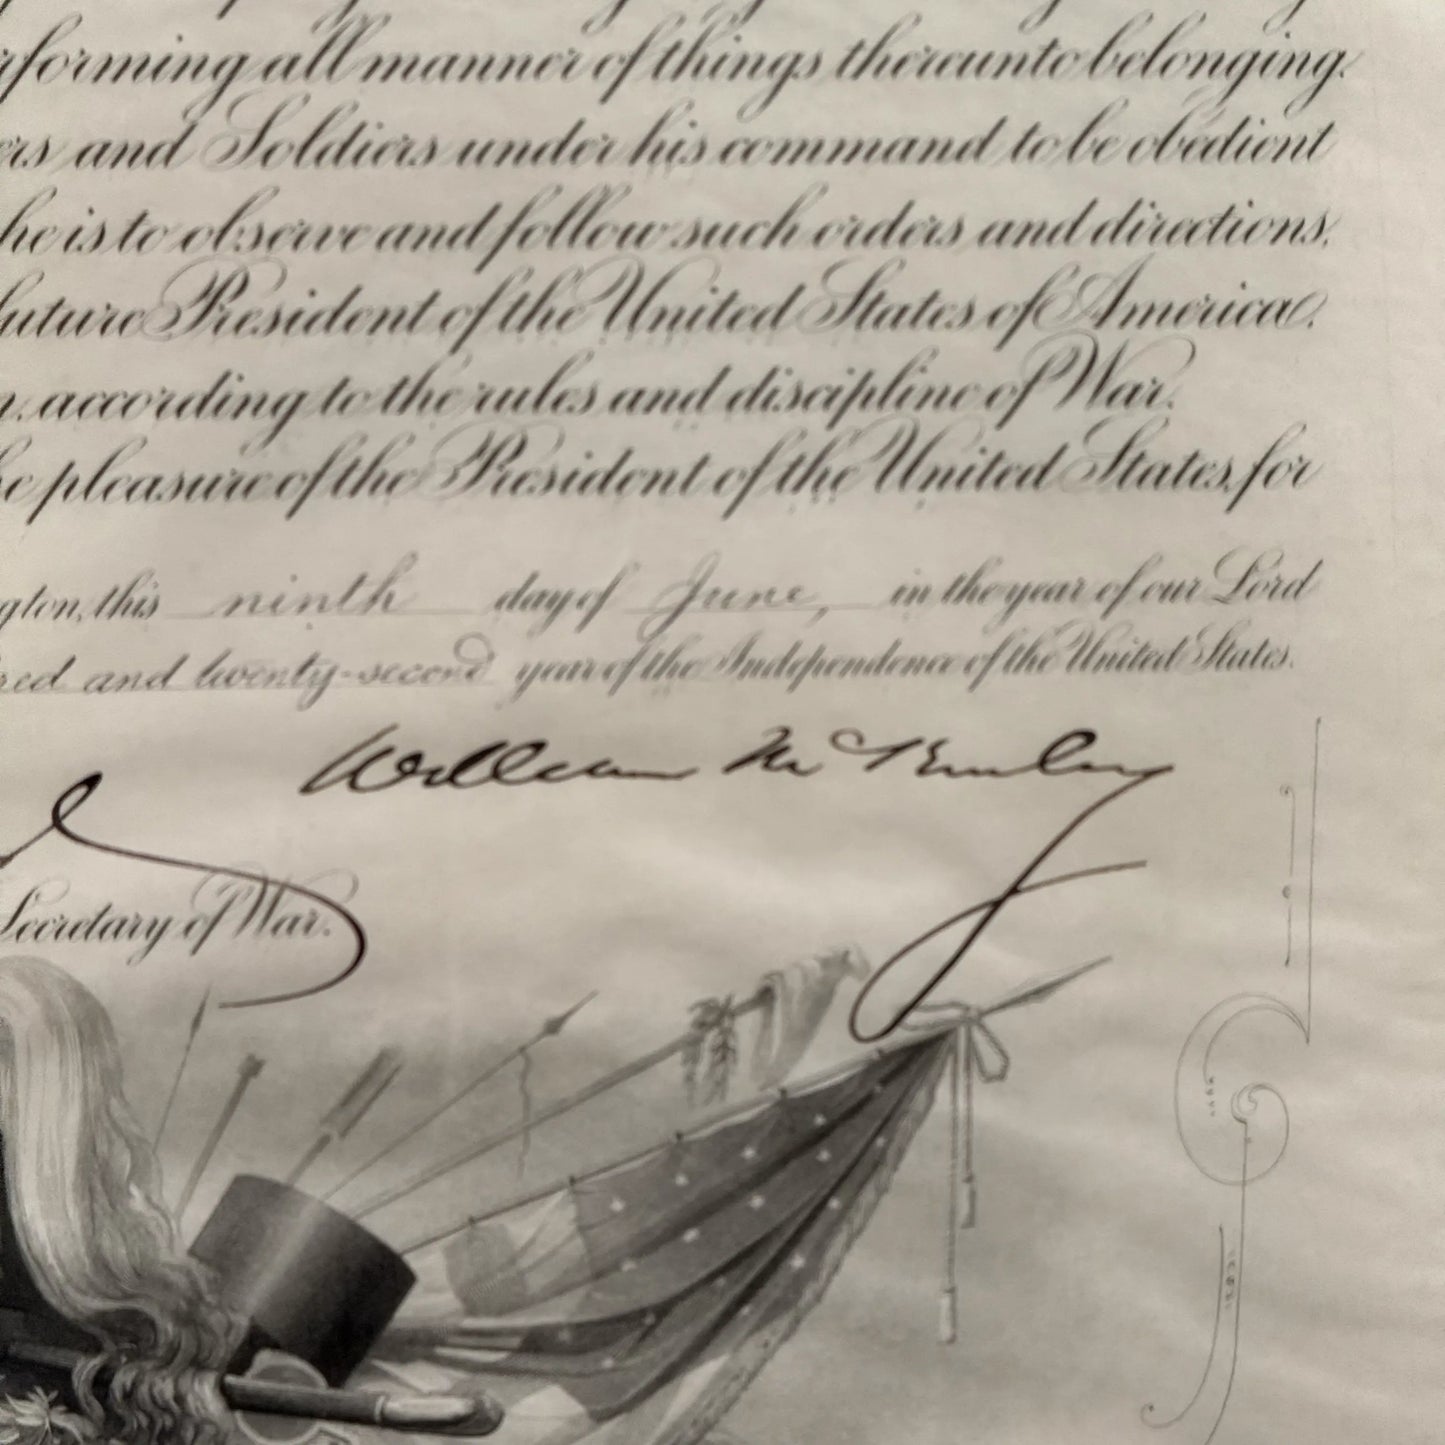 rforming all manner of things thereunto belonging.
ers and Soldiers under his command to be obedient
he is to observe and follow such orders and directions,
future President of the United States of America,
n, according to the rules and discipline of War.
he pleasure of the President of the United States, for
gton, this ninth day of June, in the year of our Lord
red and twenty-second year of the Independence of the United States.
William McKinley
Secretary of War.